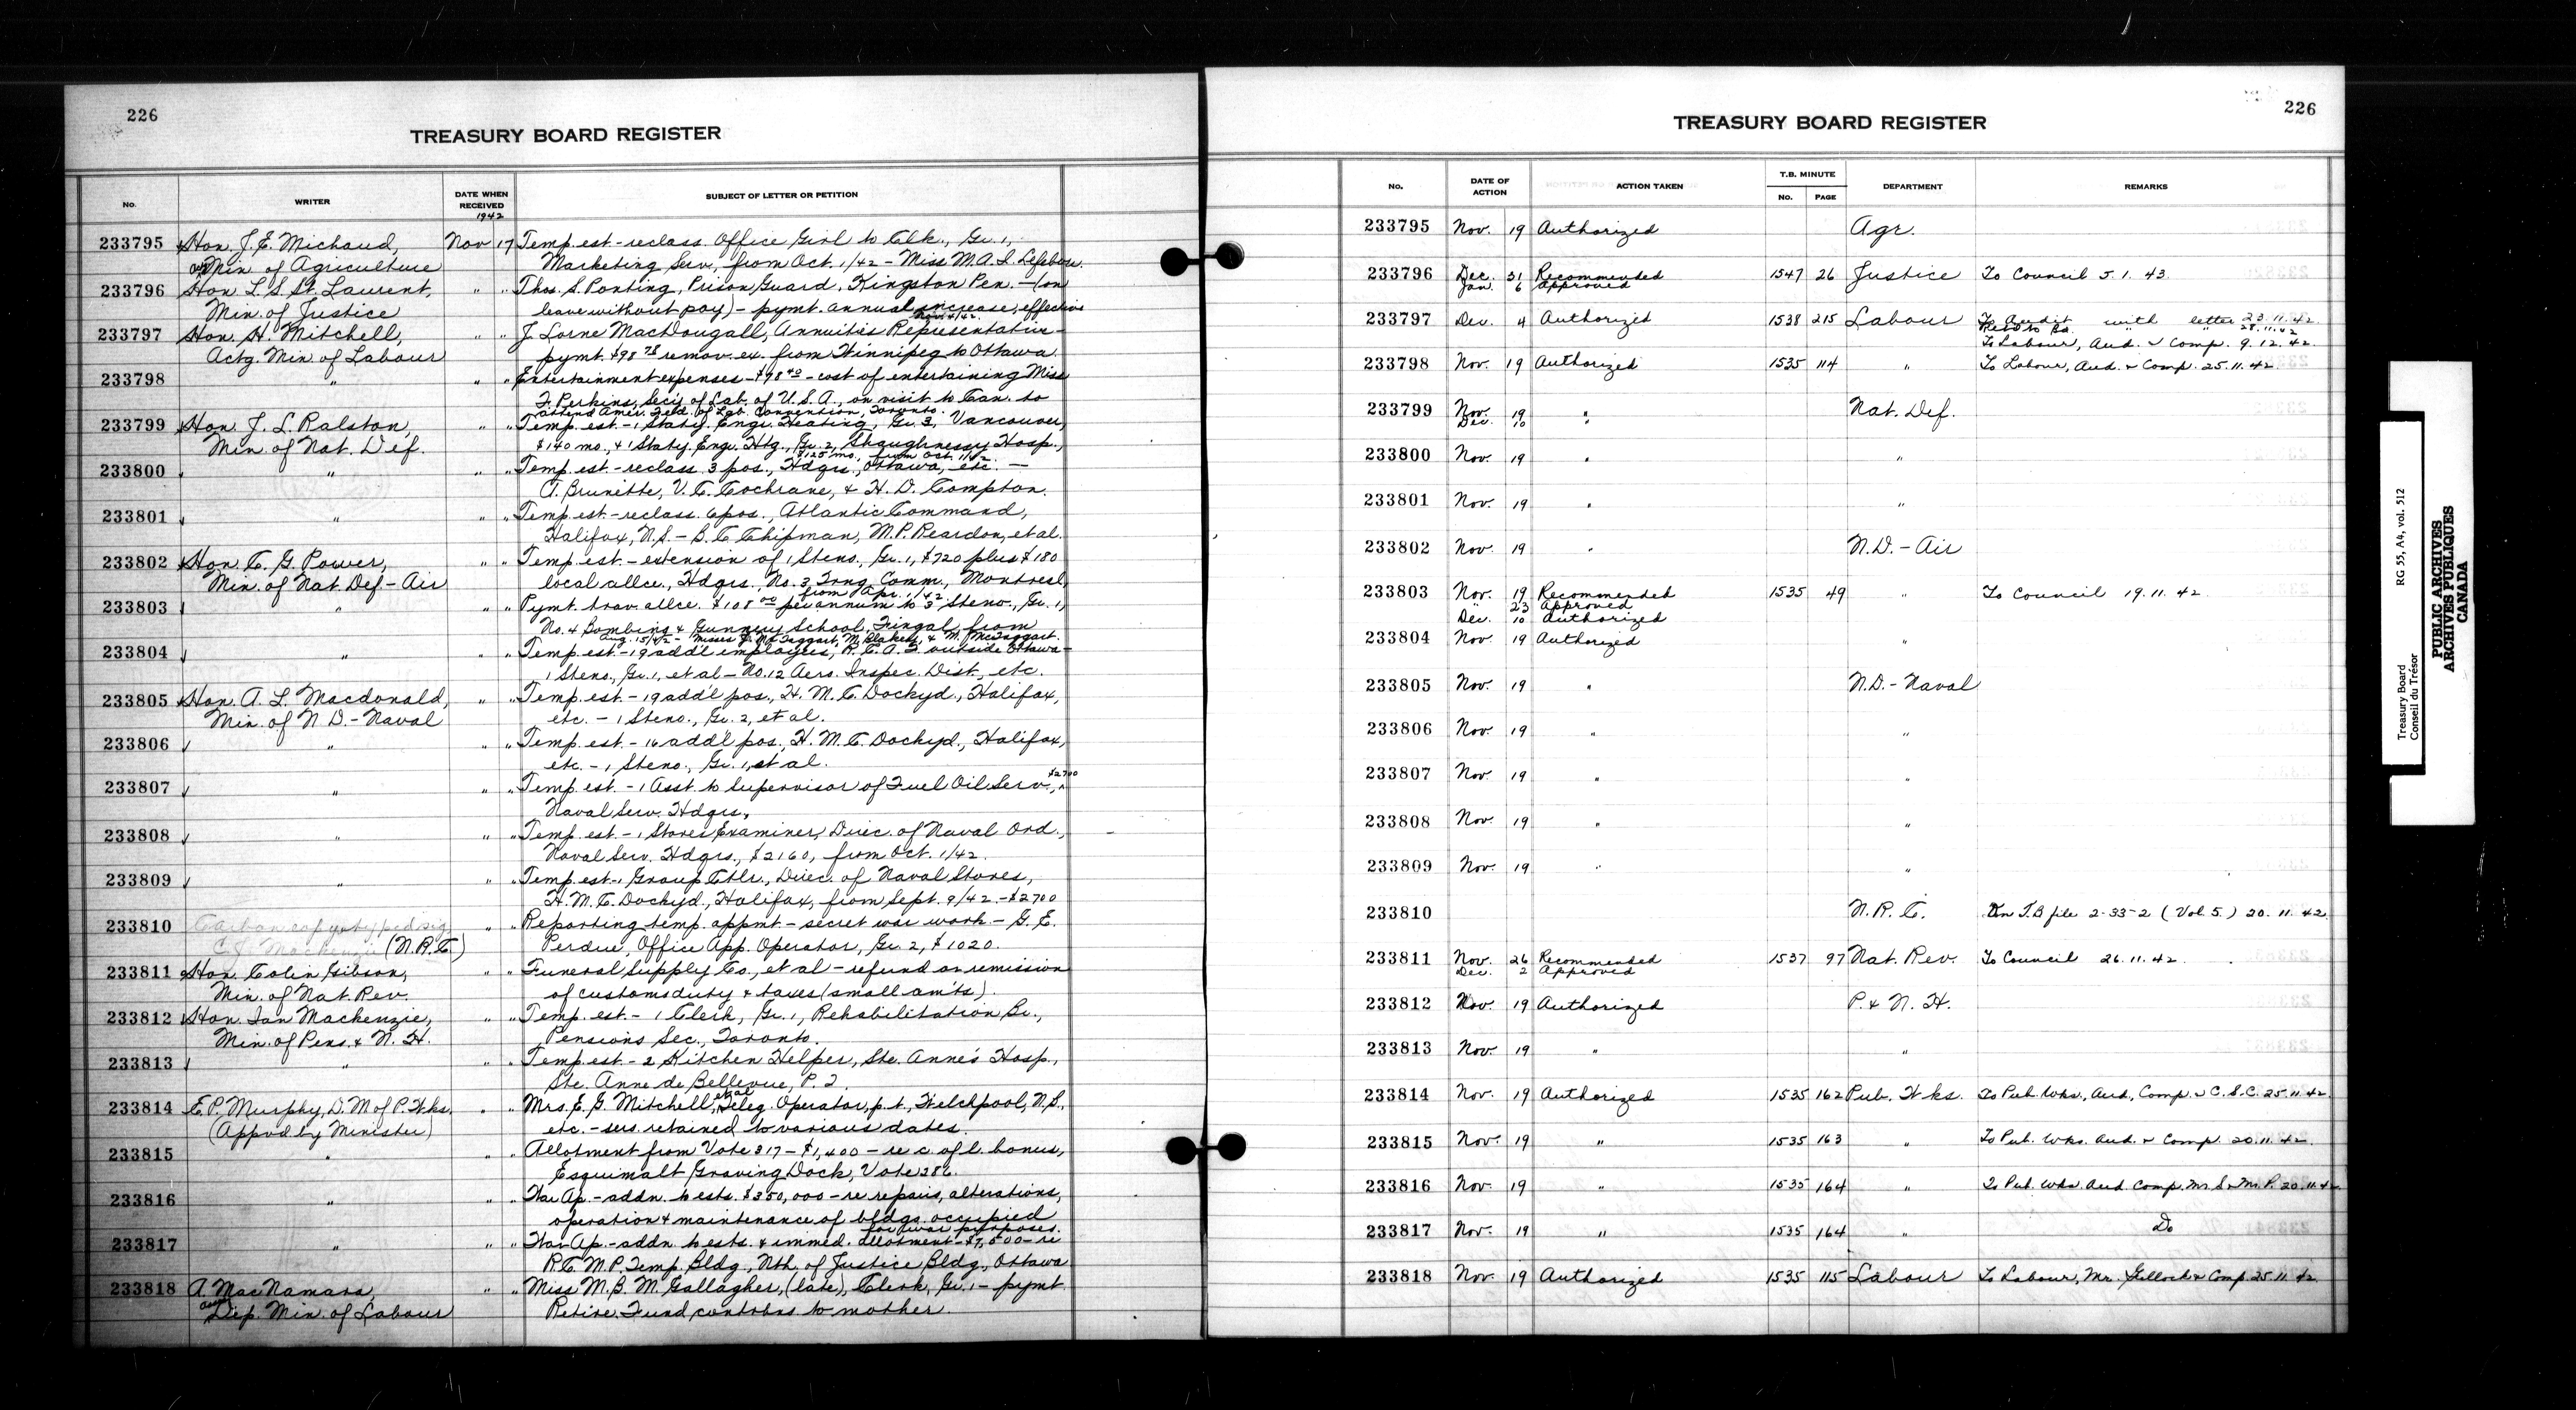 226
TREASURY BOARD REGISTER
No. WRITER DATE WHEN RECEIVED SUBJECT OF LETTER OR PETITION
1942
233795 Hon. J. E. Michaud, Nov 17 Temp. est - reclass. Office Girl to Clk., Gr. 1,
Actg Min. of Agriculture Marketing Serv., from Oct. 1/42 - Miss M. A. I. Lefebvre.
233796 Hon. L. S. St. Laurent, " " Thos. S. Ponting, Prison Guard, Kingston Pen. - (on
Min. of Justice leave without pay) - pymt. annual increase, effective
233797 Hon. H. Mitchell, " " J. Lorne MacDougall, Annuities Representative -
Actg. Min. of Labour pymt. $98.78 remov. ex. from Winnipeg to Ottawa.
233798 " " " Entertainment expenses - $98.40 - cost of entertaining Miss
F. Perkins, Sec'y of Lab. of U.S.A., on visit to Can. to
attend Amer. Fed. of Lab. Convention, Toronto.
233799 Hon. J. L. Ralston, " " Temp. est. - 1 Staty. Engr. Heating, Gr. 3, Vancouver,
Min. of Nat. Def. $140 mo., & 1 Staty. Engr. Htg., Gr. 2, Shaughnessy Hosp.,
$125 mo., from Oct. 1/42.
233800 " " " Temp. est. - reclass. 3 pos., Hdqrs., Ottawa, etc. -
A. Brunette, V. C. Cochrane, & H. D. Compton.
233801 " " " Temp. est - reclass. 6 pos., Atlantic Command,
Halifax, N.S. - B. C. Chipman, M. P. Reardon, et al.
233802 Hon. C. G. Power, " " Temp. est. - extension of 1 Steno., Gr. 1, $720 plus $180
Min. of Nat. Def - Air local allce., Hdqrs. No. 3 Trng. Comm., Montreal,
from Apr. 1/42.
233803 " " " Pymt. trav. allce. $108.00 per annum to 3 Steno., Gr. 1,
No. 4 Bombing & Gunnery School, Fingal, from
Aug. 15/42 - Misses J. McTaggart, M. Blakely, & M. McTaggart.
233804 " " " Temp. est - 19 add'l employees, R.C.A.F. outside Ottawa -
1 Steno., Gr. 1, et al - No. 12 Aero. Inspec. Dist., etc.
233805 Hon. A. L. Macdonald, " " Temp. est - 19 add'l pos., H. M. C. Dockyd., Halifax,
Min. of N. D. - Naval etc. - 1 Steno., Gr. 2, et al.
233806 " " " Temp. est - 16 add'l pos., H. M. C. Dockyd., Halifax,
etc. - 1 Steno., Gr. 1, et al.
233807 " " " Temp. est. - 1 Asst. to Supervisor of Fuel Oil Serv., $2700
Naval Serv. Hdqrs.
233808 " " " Temp. est. - 1 Stores Examiner, Direc. of Naval Ord.,
Naval Serv. Hdqrs., $2160, from Oct. 1/42.
233809 " " " Temp. est - 1 Group Ctlr., Direc. of Naval Stores,
H. M. C. Dockyd., Halifax, from Sept. 9/42 - $2700
233810 Carbon copy " Reporting temp. appmt - secret war work - G. E.
C. J. Mackenzie (N.R.C.) Perdue, Office App. Operator, Gr. 2, $1020.
233811 Hon. Colin Gibson, " " Funeral Supply Co., et al - refund or remission
Min. of Nat. Rev. of customs duty & taxes (small am'ts).
233812 Hon. Ian Mackenzie, " " Temp. est. - 1 Clerk, Gr. 1, Rehabilitation Br.,
Min. of Pens. & N. H. Pensions Sec., Toronto.
233813 " " " Temp. est - 2 Kitchen Helper, Ste. Anne's Hosp.,
Ste. Anne de Bellevue, P. Q.
233814 E. P. Murphy, D. M. of P. Wks. " " Mrs. E. G. Mitchell, et al Teleg. Operator, p. t., Welchpool, N.B.,
(Appvd by Minister) etc. - sers. retained to various dates.
233815 " " Allotment from Vote 317 - $1,400 - re c. of l. bonus,
Esquimalt Graving Dock, Vote 286.
233816 " " " War Ap. - addn. to ests. $350,000 - re repairs, alterations,
operation & maintenance of bldgs. occupied
for war purposes.
233817 " " " War Ap. - addn. to ests. & immed. allotment - $7,500 - re
R.C.M.P. Temp. Bldg., Nth. of Justice Bldg., Ottawa
233818 A. MacNamara, " " Miss M. B. M. Gallagher, (late), Clerk, Gr. 1 - pymt.
Dep. Min. of Labour Retire. Fund contrbns to mother.
226
TREASURY BOARD REGISTER
No. DATE OF ACTION ACTION TAKEN T.B. MINUTE No. PAGE DEPARTMENT REMARKS
233795 Nov. 19 Authorized Agr.
233796 Dec. 31 Recommended 1547 26 Justice To Council 5. 1. 43.
Jan. 6 Approved
233797 Dec. 4 Authorized 1538 215 Labour To Audit with letter 23.11.42
Ret'd to Bd. " " 28.11.42
To Labour, Aud. & Comp. 9.12.42.
233798 Nov. 19 Authorized 1535 114 " To Labour, Aud. & Comp. 25.11.42.
233799 Nov. 19 " Nat. Def.
Dec. 10 "
233800 Nov. 19 " "
233801 Nov. 19 " "
233802 Nov. 19 " N.D. - Air
233803 Nov. 19 Recommended 1535 49 " To Council 19.11.42
" 23 Approved
Dec. 10 Authorized
233804 Nov. 19 Authorized "
233805 Nov. 19 " N.D. - Naval
233806 Nov. 19 " "
233807 Nov. 19 " "
233808 Nov. 19 " "
233809 Nov. 19 " "
233810 N.R.C. On T.B file 2-33-2 (Vol. 5.) 20.11.42.
233811 Nov. 26 Recommended 1537 97 Nat. Rev. To Council 26.11.42.
Dec. 2 Approved
233812 Nov. 19 Authorized P. & N. H.
233813 Nov. 19 " "
233814 Nov. 19 Authorized 1535 162 Pub. Wks. To Pub. Wks., Aud., Comp. & C.S.C. 25.11.42.
233815 Nov. 19 " 1535 163 " To Pub. Wks. Aud. & Comp. 20.11.42.
233816 Nov. 19 " 1535 164 " To Pub. Wks Aud. Comp. Mr. S. & Mr. P. 20.11.42.
233817 Nov. 19 " 1535 164 " Do
233818 Nov. 19 Authorized 1535 115 Labour To Labour, Mr. & Comp 25.11.42.
Treasury Board RG 55, A4, vol. 512
Conseil du Trésor
PUBLIC ARCHIVES
ARCHIVES PUBLIQUES
CANADA